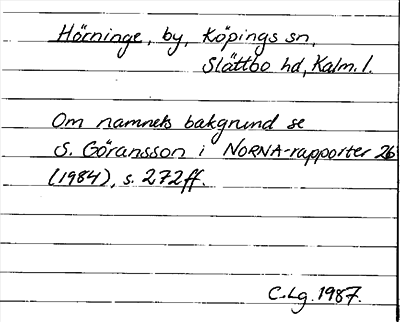 Hörninge, by, Köpings sn,
Slättbo hd, Kalm. l.
Om namnets bakgrund se
S. Göransson i NORNA-rapporter 26
(1984), s. 272ff.
C.Lg. 1987.